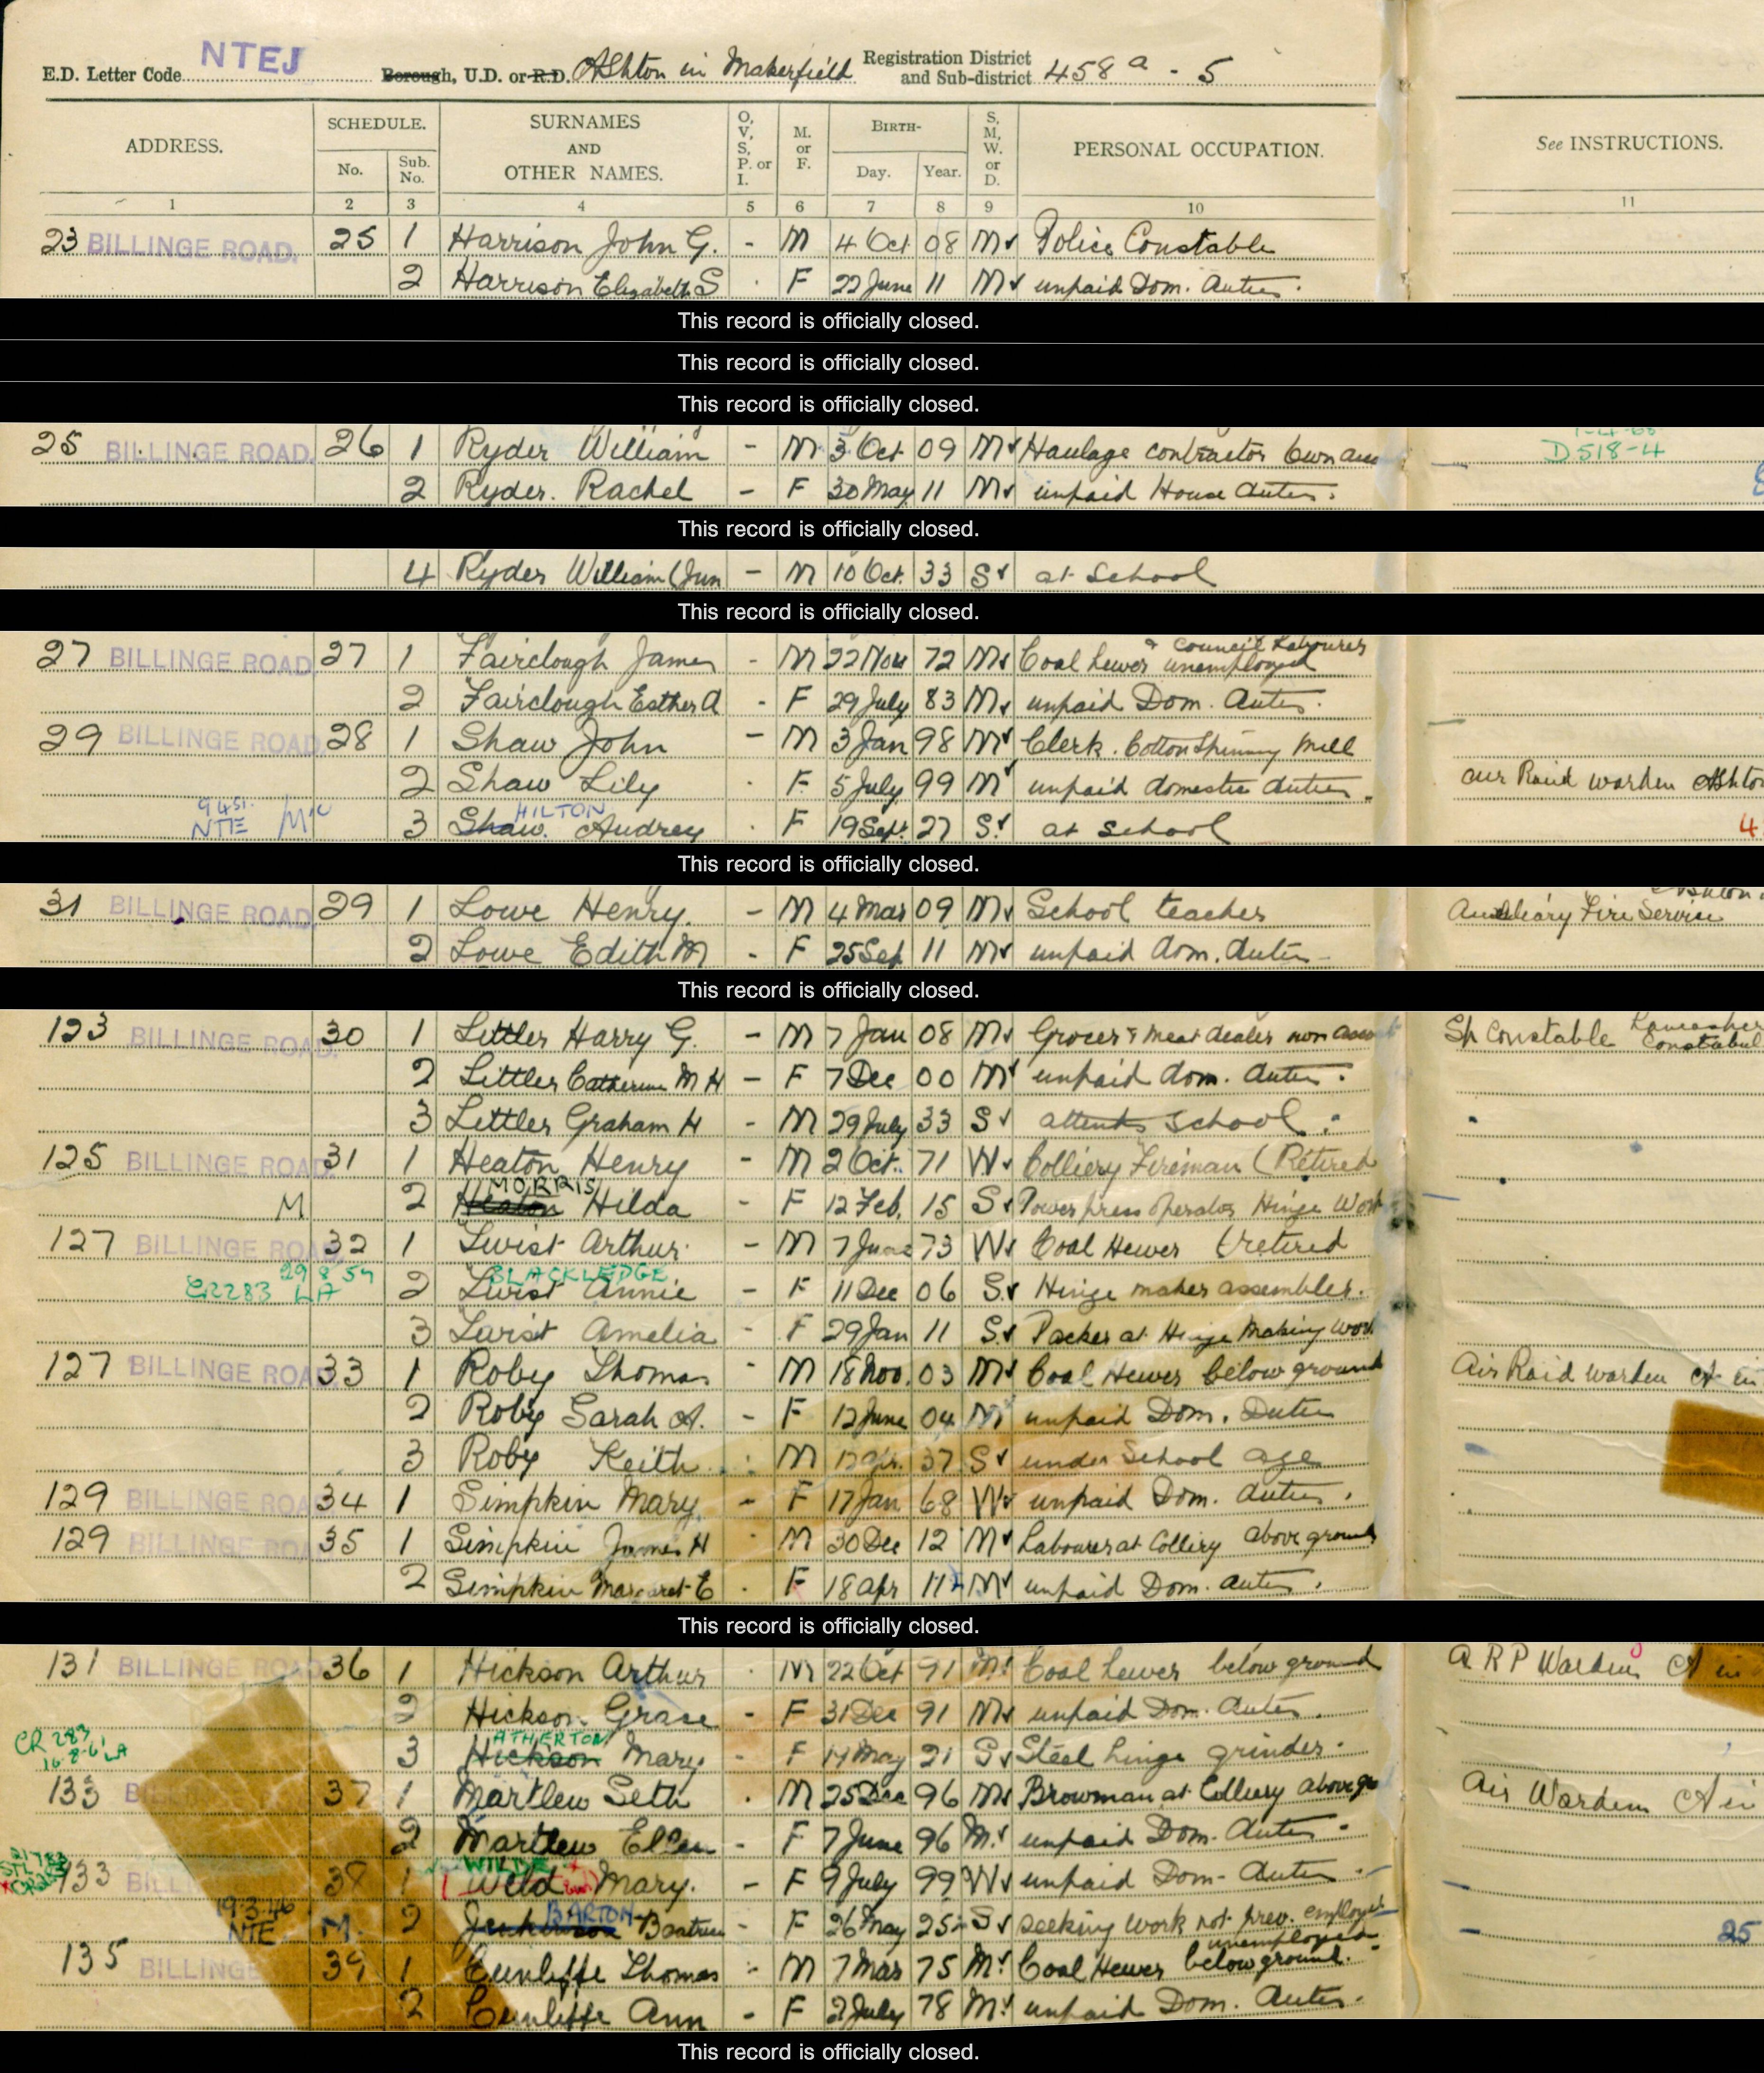 E.D. Letter Code NTEJ Borough, U.D. or R.D. Ashton in Makerfield Registration District and Sub-district 458a - 5
ADDRESS. SCHEDULE. No. Sub. No. SURNAMES AND OTHER NAMES. O, V, S, P. or I. M. or F. BIRTH- Day. Year. S, M, W. or D. PERSONAL OCCUPATION. See INSTRUCTIONS.
1 2 3 4 5 6 7 8 9 10 11
23 BILLINGE ROAD. 25 1 Harrison John G. - M 4 Oct 08 M Police Constable
2 Harrison Elizabeth S - F 22 June 11 M unpaid Dom. Duties.
This record is officially closed.
This record is officially closed.
This record is officially closed.
25 BILLINGE ROAD. 26 1 Ryder William - M 3 Oct 09 M Haulage contractor Own acc D518-4
2 Ryder. Rachel - F 30 May 11 M unpaid House duties.
This record is officially closed.
4 Ryder William (Jun - M 10 Oct. 33 S at School
This record is officially closed.
27 BILLINGE ROAD 27 1 Fairclough James - M 22 Nov 72 M Coal hewer & council Labourer unemployed
2 Fairclough Esther A - F 29 July 83 M unpaid Dom. Duties.
29 BILLINGE ROAD 28 1 Shaw John - M 3 Jan 98 M Clerk. Cotton Spinning Mill
2 Shaw Lily - F 5 July 99 M unpaid domestic duties. Air Raid Warden Ashton
NTE 3 Shaw HILTON Audrey - F 19 Sept. 27 S at School 4
This record is officially closed.
31 BILLINGE ROAD 29 1 Lowe Henry. - M 4 Mar 09 M School teacher Auxiliary Fire Service Ashton
2 Lowe Edith M - F 25 Sep 11 M unpaid dom. duties
This record is officially closed.
123 BILLINGE ROAD. 30 1 Littler Harry G. - M 7 Jan 08 M Grocer & meat dealer own account Sp Constable Lancashire Constabul
2 Littler Catherine M H - F 7 Dec 00 M unpaid dom. duties.
3 Littler Graham H - M 29 July 33 S attends School.
125 BILLINGE ROAD. 31 1 Heaton Henry - M 2 Oct. 71 W Colliery Fireman (Retired
M 2 Heaton MORRIS Hilda - F 12 Feb. 15 S Power press operator Hinge Work
127 BILLINGE ROAD 32 1 Twist Arthur. - M 7 June 73 W Coal Hewer (retired
29 8 54 CR283 LA 2 Twist BLACKLEDGE Annie - F 11 Dec 06 S Hinge maker assembler.
3 Twist Amelia - F 29 Jan 11 S Packer at Hinge Making Work
127 BILLINGE ROAD 33 1 Roby Thomas - M 18 Nov. 03 M Coal Hewer below ground Air Raid Warden A in
2 Roby Sarah A. - F 12 June 04 M unpaid Dom. Duties
3 Roby Keith - M 12 Apr. 37 S under School age
129 BILLINGE ROAD 34 1 Simpkin Mary. - F 17 Jan 68 W unpaid Dom. duties.
129 BILLINGE ROAD 35 1 Simpkin James H - M 30 Dec 12 M Labourer at Colliery above ground
2 Simpkin Margaret E - F 18 Apr 11 M unpaid Dom. duties.
This record is officially closed.
131 BILLINGE ROAD 36 1 Hickson Arthur - M 22 Oct 91 M Coal hewer below ground A R P Warden A in
2 Hickson Grace - F 31 Dec 91 M unpaid Dom. duties.
CR 283 16-8-61 LA 3 Hickson ATHERTON Mary - F 14 May 21 S Steel hinge grinder.
133 37 1 Martlew Seth - M 25 Dec 96 M Browman at Colliery above gr Air Warden A in
2 Martlew Ellen - F 7 June 96 M unpaid Dom. Duties.
133 38 1 Wild WILDE Mary. - F 9 July 99 W unpaid Dom. Duties.
19-3-46 NTE M. 2 BARTON Beatrice - F 26 May 25 S seeking work not prev. employed 25
135 BILLINGE 39 1 Cunliffe Thomas - M 7 Mar 75 M Coal Hewer below ground. unemployed
2 Cunliffe Ann - F 2 July 78 M unpaid Dom. Duties.
This record is officially closed.